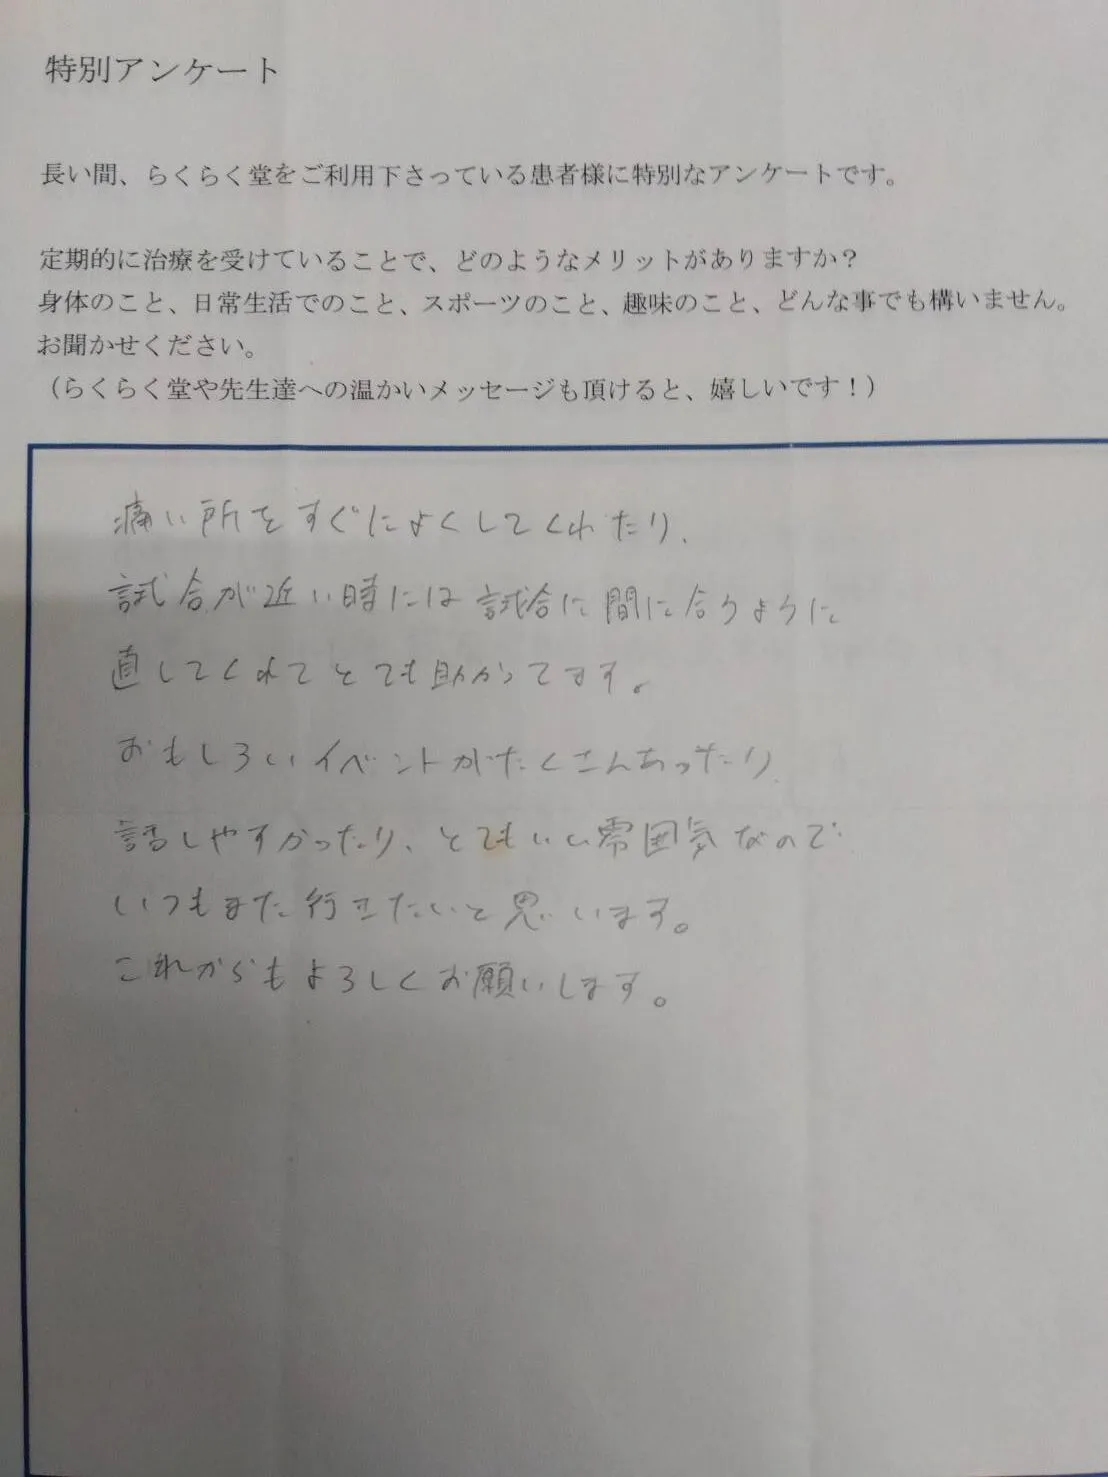 特別アンケート
長い間、らくらく堂をご利用下さっている患者様に特別なアンケートです。
定期的に治療を受けていることで、どのようなメリットがありますか？
身体のこと、日常生活でのこと、スポーツのこと、趣味のこと、どんな事でも構いません。
お聞かせください。
（らくらく堂や先生達への温かいメッセージも頂けると、嬉しいです！）
痛い所をすぐによくしてくれたり、
試合が近い時には試合に間に合うように
直してくれてとても助かってます。
おもしろいイベントがたくさんあったり、
話しやすかったり、とてもいい雰囲気なので
いつもまた行きたいと思います。
これからもよろしくお願いします。